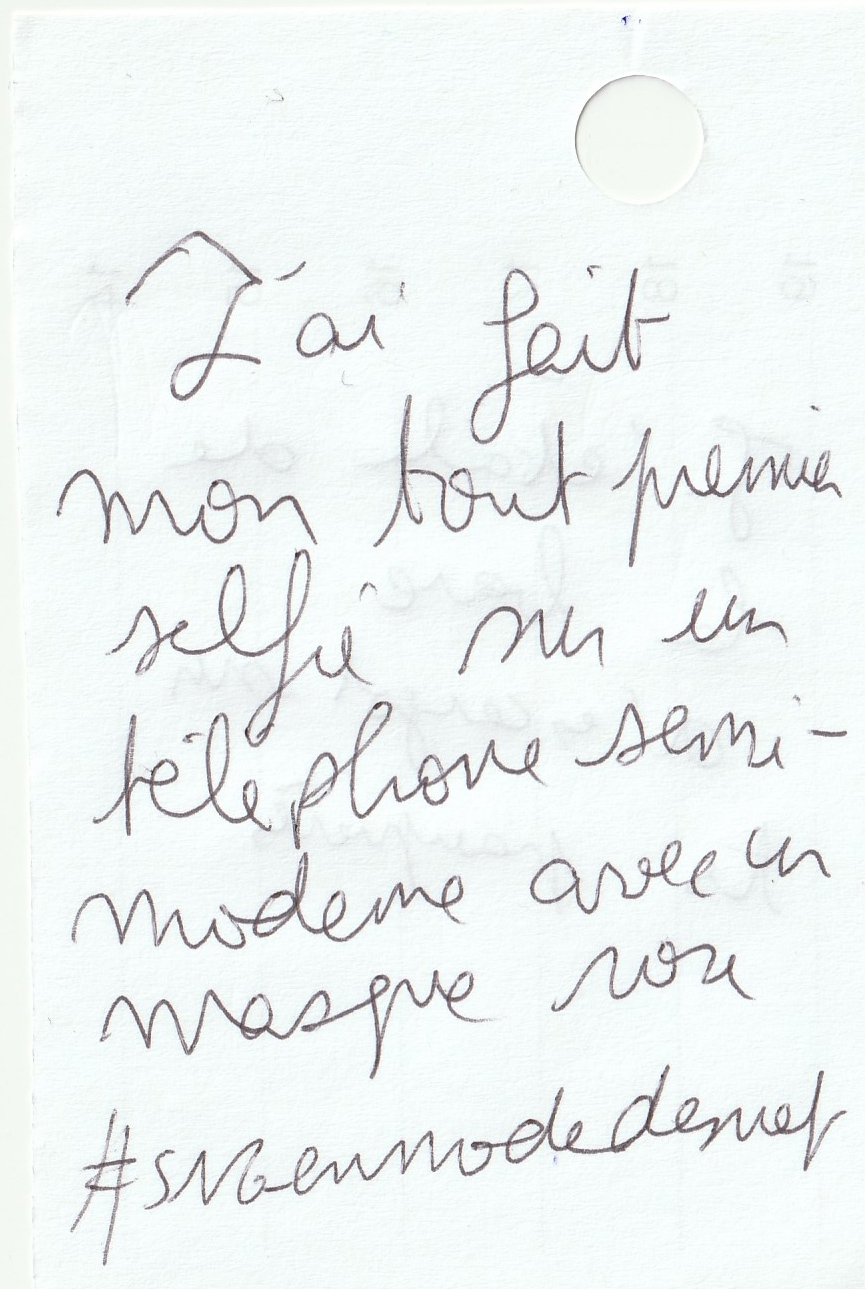 J'ai fait
mon tout premier
selfie sur un
téléphone semi-
moderne avec un
masque rose